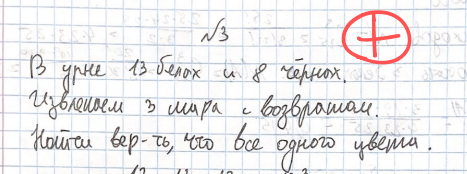 №3
В урне 13 белых и 8 чёрных.
Извлекаем 3 шара с возвратом.
Найти вер-ть, что все одного цвета.